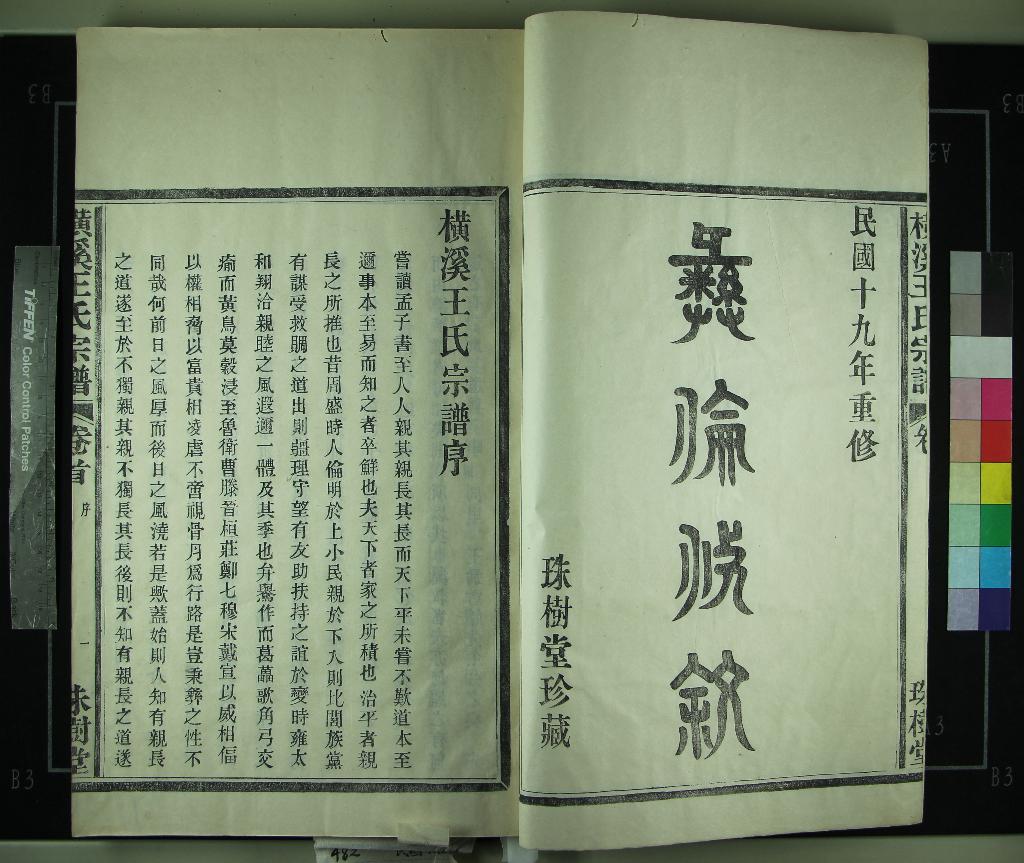 橫溪王氏宗譜
卷
珠樹堂
民國十九年重修
彝倫攸敘
珠樹堂珍藏
橫溪王氏宗譜序
嘗讀孟子書至人人親其親長其長而天下平未嘗不歎道本至
邇事本至易而知之者卒鮮也夫天下者家之所積也治平者親
長之所推也昔周盛時人倫明於上小民親於下人則比閭族黨
有謀受救賙之道出則疆理守望有友助扶持之誼於變時雍太
和翔洽親睦之風遐邇一體及其季也弁鬶作而葛藟歌角弓交
瘉而黃鳥莫穀浸至魯衛曹滕晉桓莊鄭七穆宋戴宣以威相偪
以權相脅以富貴相凌虐不啻視骨月爲行路是豈秉彝之性不
同哉何前日之風厚而後日之風澆若是歟蓋始則人知有親長
之道遂至於不獨親其親不獨長其長後則不知有親長之道遂
橫溪王氏宗譜
卷首
序
一
珠樹堂
TIFFEN Color Control Patches
B3
B3
B3
B3
A3
A3
482